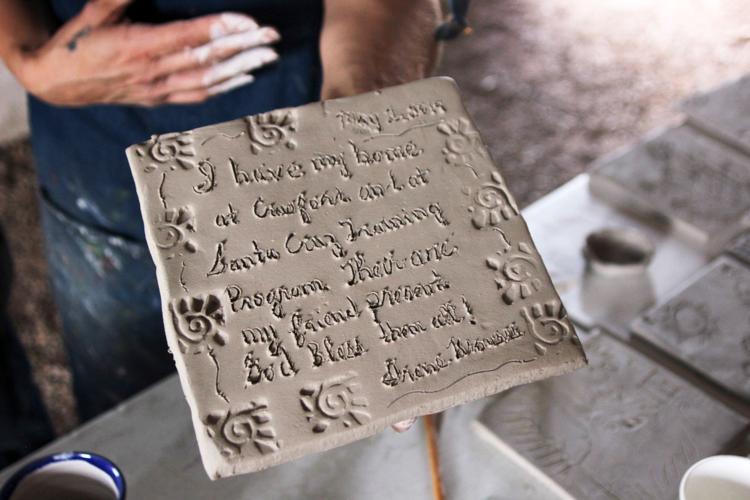 May 2, 2019
I have my home
at Comfort and at
Santa Cruz Training
Program. Their are
my friend present
God Bless them all!
Irene